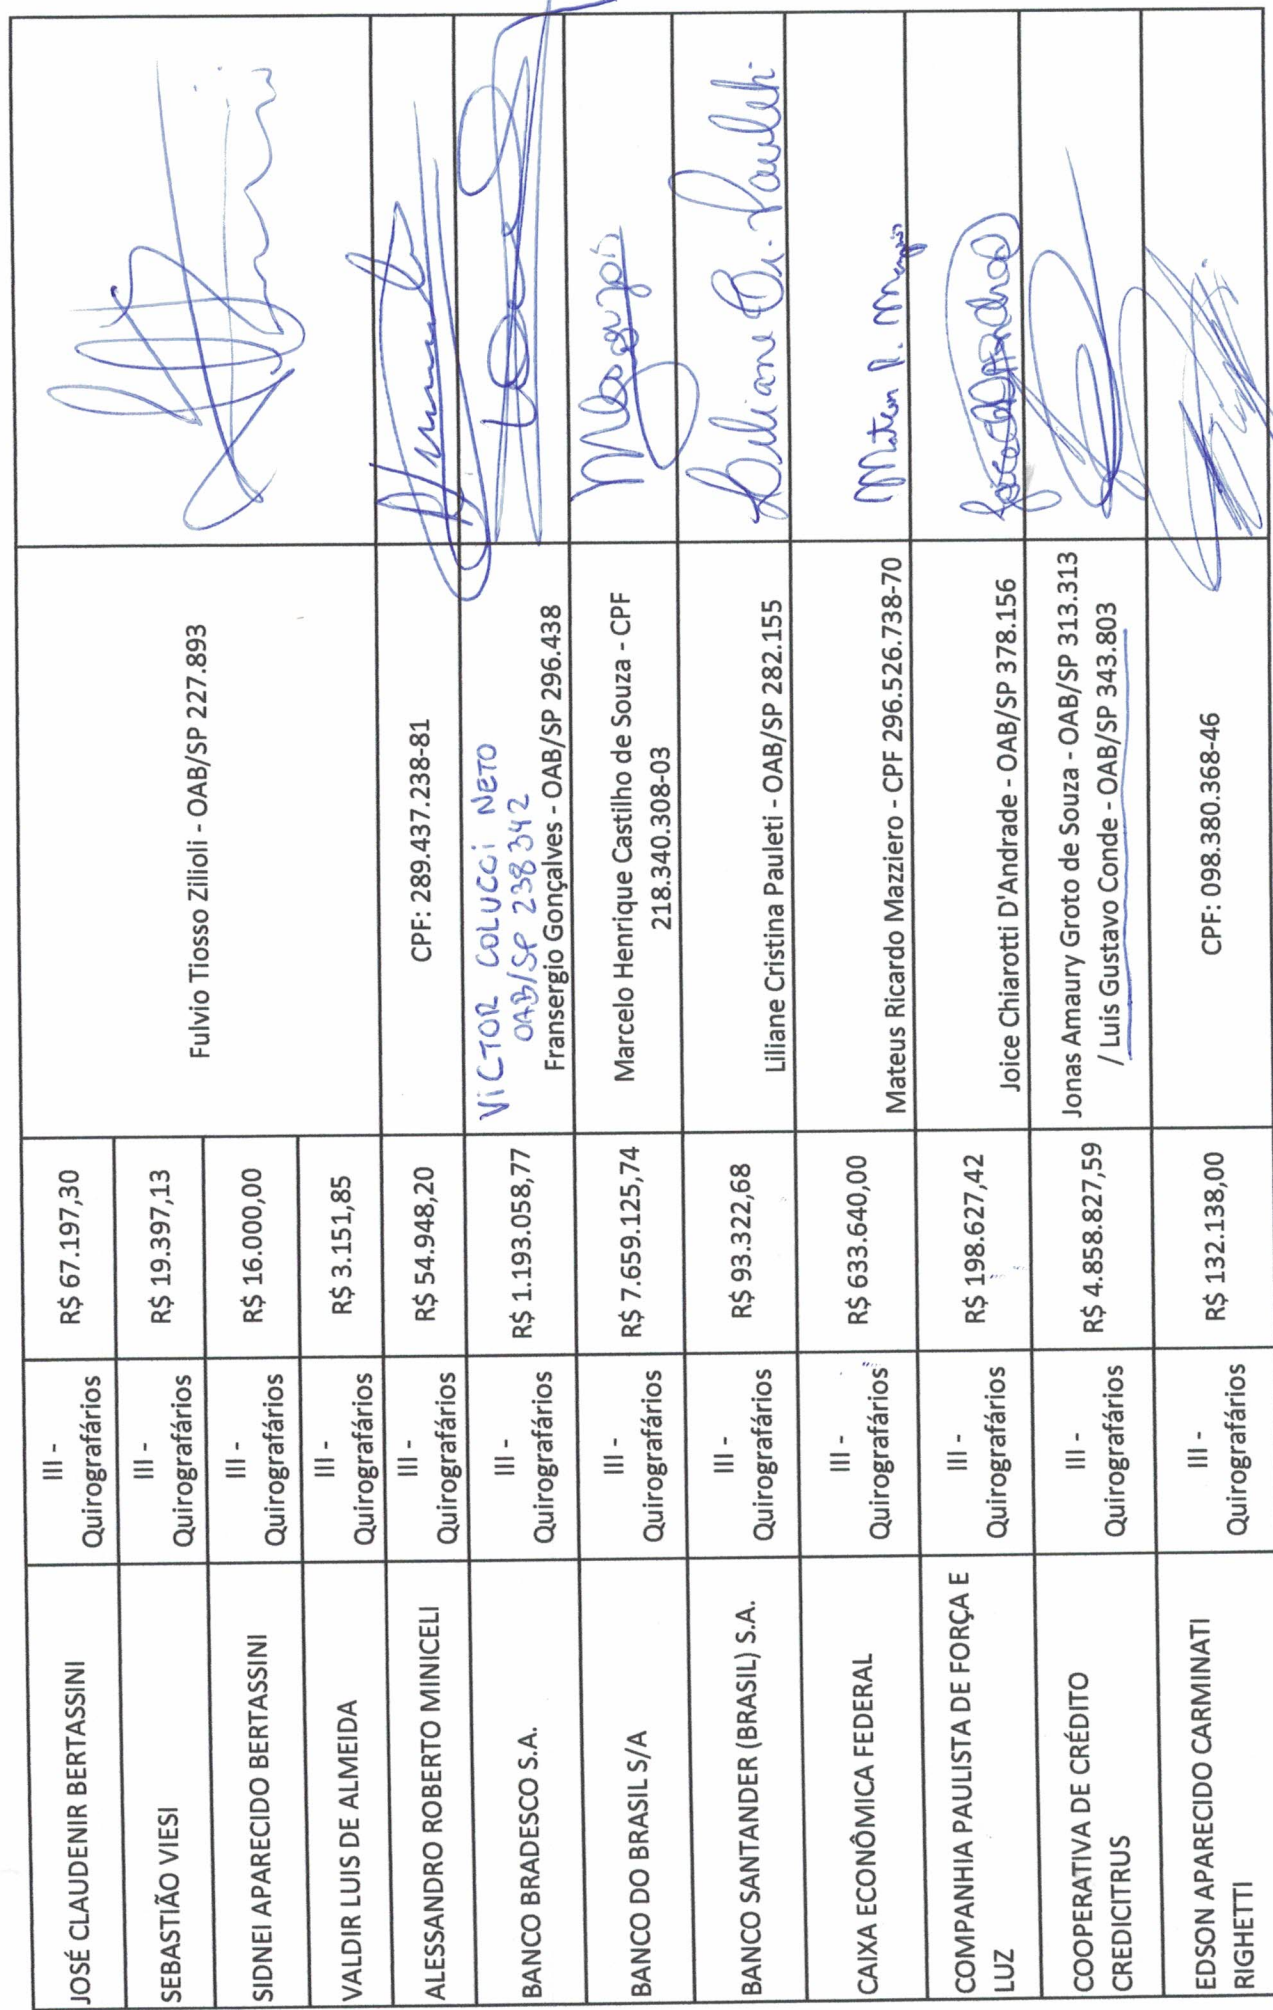 JOSÉ CLAUDENIR BERTASSINI
III -
Quirografários
R$ 67.197,30
Fulvio Tiosso Zilioli - OAB/SP 227.893
SEBASTIÃO VIESI
III -
Quirografários
R$ 19.397,13
SIDNEI APARECIDO BERTASSINI
III -
Quirografários
R$ 16.000,00
VALDIR LUIS DE ALMEIDA
III -
Quirografários
R$ 3.151,85
ALESSANDRO ROBERTO MINICELI
III -
Quirografários
R$ 54.948,20
CPF: 289.437.238-81
BANCO BRADESCO S.A.
III -
Quirografários
R$ 1.193.058,77
VICTOR COLUCCI NETO
OAB/SP 238342
Fransergio Gonçalves - OAB/SP 296.438
BANCO DO BRASIL S/A
III -
Quirografários
R$ 7.659.125,74
Marcelo Henrique Castilho de Souza - CPF
218.340.308-03
BANCO SANTANDER (BRASIL) S.A.
III -
Quirografários
R$ 93.322,68
Liliane Cristina Pauleti - OAB/SP 282.155
Liliane Cri. Pauleti
CAIXA ECONÔMICA FEDERAL
III -
Quirografários
R$ 633.640,00
Mateus Ricardo Mazziero - CPF 296.526.738-70
COMPANHIA PAULISTA DE FORÇA E
LUZ
III -
Quirografários
R$ 198.627,42
Joice Chiarotti D'Andrade - OAB/SP 378.156
COOPERATIVA DE CRÉDITO
CREDICITRUS
III -
Quirografários
R$ 4.858.827,59
Jonas Amaury Groto de Souza - OAB/SP 313.313
/ Luis Gustavo Conde - OAB/SP 343.803
EDSON APARECIDO CARMINATI
RIGHETTI
III -
Quirografários
R$ 132.138,00
CPF: 098.380.368-46